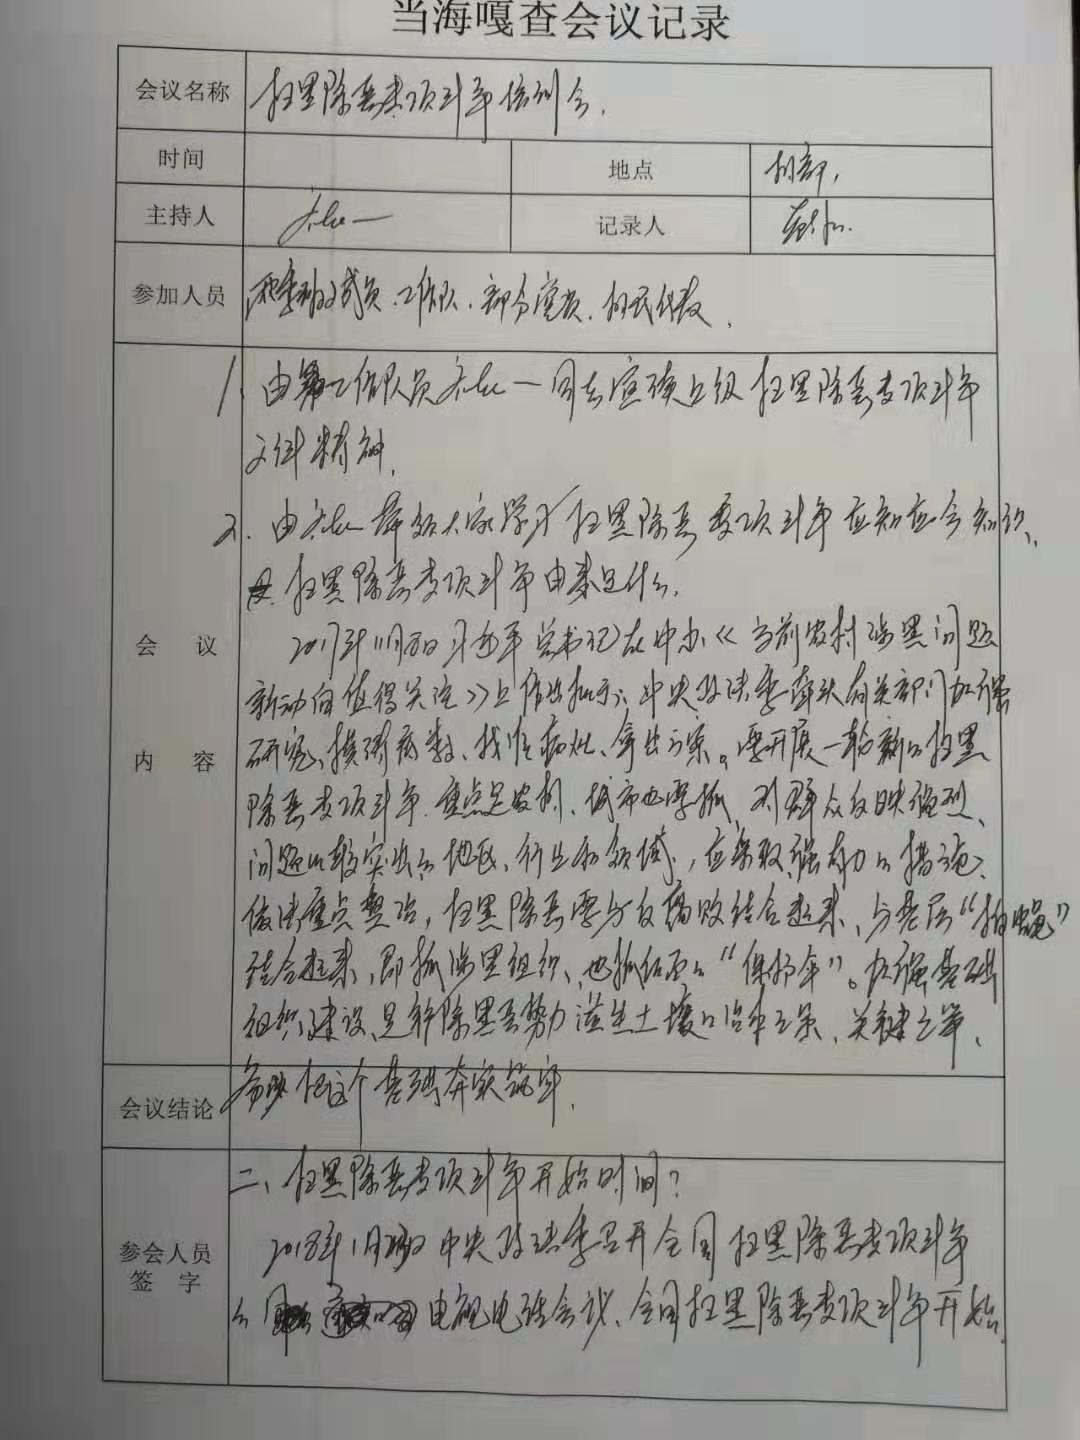 当海嘎查会议记录
会议名称 扫黑除恶专项斗争培训会.
时间 地点 村部,
主持人 记录人
参加人员 两委班子成员、工作队、部分党员、村民代表、
1、由第工作队员 一同志宣读上级扫黑除恶专项斗争
文件精神,
2、由 带领大家学习扫黑除恶专项斗争应知应会知识、
扫黑除恶专项斗争由来是什么,
2017年11月 习近平总书记在中办《当前农村涉黑问题
新动向值得关注》上作出批示: 中央政法委牵头有关部门加强
研究、摸清底数、找准病灶、拿出方案。要开展一轮新的扫黑
除恶专项斗争.重点是农村、城市也要抓,对群众反映强烈、
问题比较突出的地区、行业和领域,应采取强有力的措施、
依法重点整治,扫黑除恶要与反腐败结合起来、与基层“拍蝇”
结合起来,即抓涉黑组织、也抓后面的“保护伞”。加强基础
组织建设、是铲除黑恶势力滋生土壤的治本之策、关键之举、
会议 内容
务必把这个基础夯实筑牢.
会议结论
二、扫黑除恶专项斗争开始时间?
2018年1月23日中央政法委召开全国扫黑除恶专项斗争
的 电视电话会议、全国扫黑除恶专项斗争开始.
参会人员
签 字